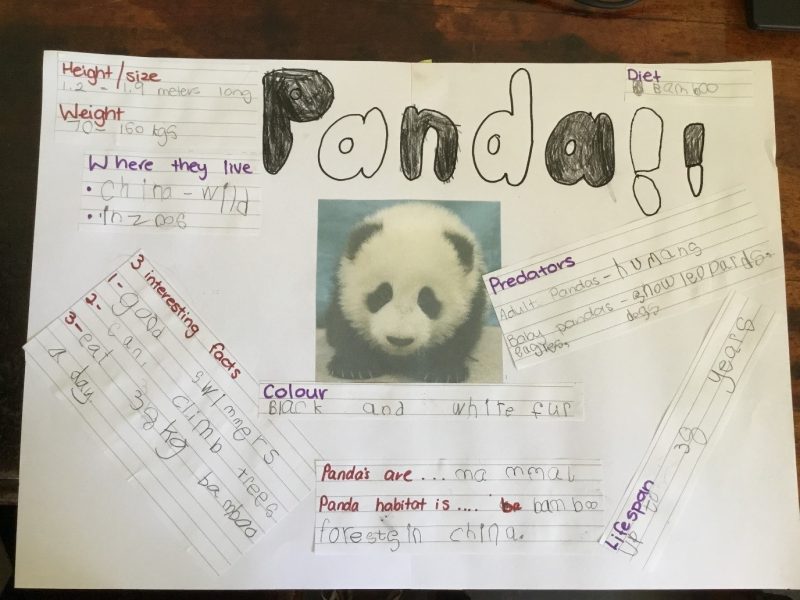 Panda!!
Height/size
1.2 - 1.9 meters long
Weight
70- 160 kgs
Where they live
• China - wild
• In zoos
Diet
Bamboo
Predators
Adult Pandas - humans
Baby pandas - snow leopards,
eagles, dogs
3 interesting facts
1- good swimmers
2- can, climb trees
3- eat 38kg bamboo
a day
Colour
Black and white fur
Panda's are ... mammal
Panda habitat is .... bamboo
forests in china.
Lifespan
up to 38 years